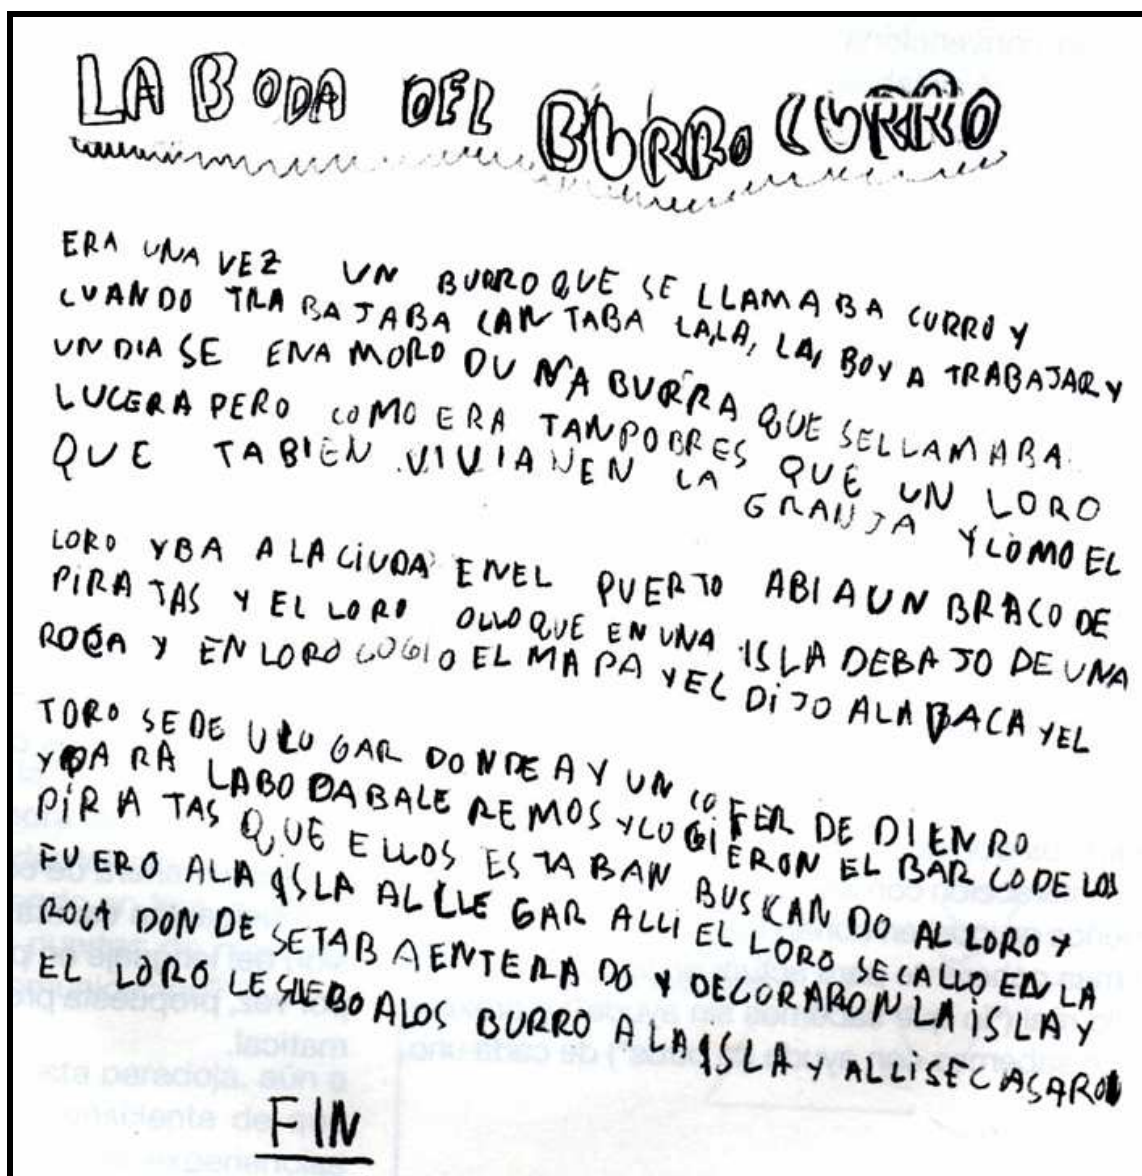 LA BODA DEL BURRO CURRO
ERA UNA VEZ UN BURRO QUE SE LLAMABA CURRO Y
CUANDO TRABAJABA CANTABA LALA, LA, BOY A TRABAJAR Y
UN DIA SE ENAMORO DUNA BURRA QUE SELLAMABA
LUCERA PERO COMO ERA TANPOBRES QUE UN LORO
QUE TABIEN VIVIANEN LA GRANJA Y COMO EL
LORO YBA A LA CIUDA ENEL PUERTO ABIA UN BRACO DE
PIRATAS Y EL LORO OLLO QUE EN UNA ISLA DEBAJO DE UNA
ROCA Y EN LORO COGIO EL MAPA Y EL DIJO ALA BACA YEL
TORO SE DE ULUGAR DONDE AY UN COFER DE DIENRO
Y PARA LABODABALE REMOS Y COGIERON EL BARCO DE LOS
PIRATAS QUE ELLOS ESTABAN BUSCANDO AL LORO Y
FUERO ALA ISLA AL LLEGAR ALLI EL LORO SE CALLO EN LA
ROCA DONDE SETABA ENTERADO Y DECORARON LA ISLA Y
EL LORO LES LLEBO ALOS BURRO ALA ISLA Y ALLI SE CASARON
FIN